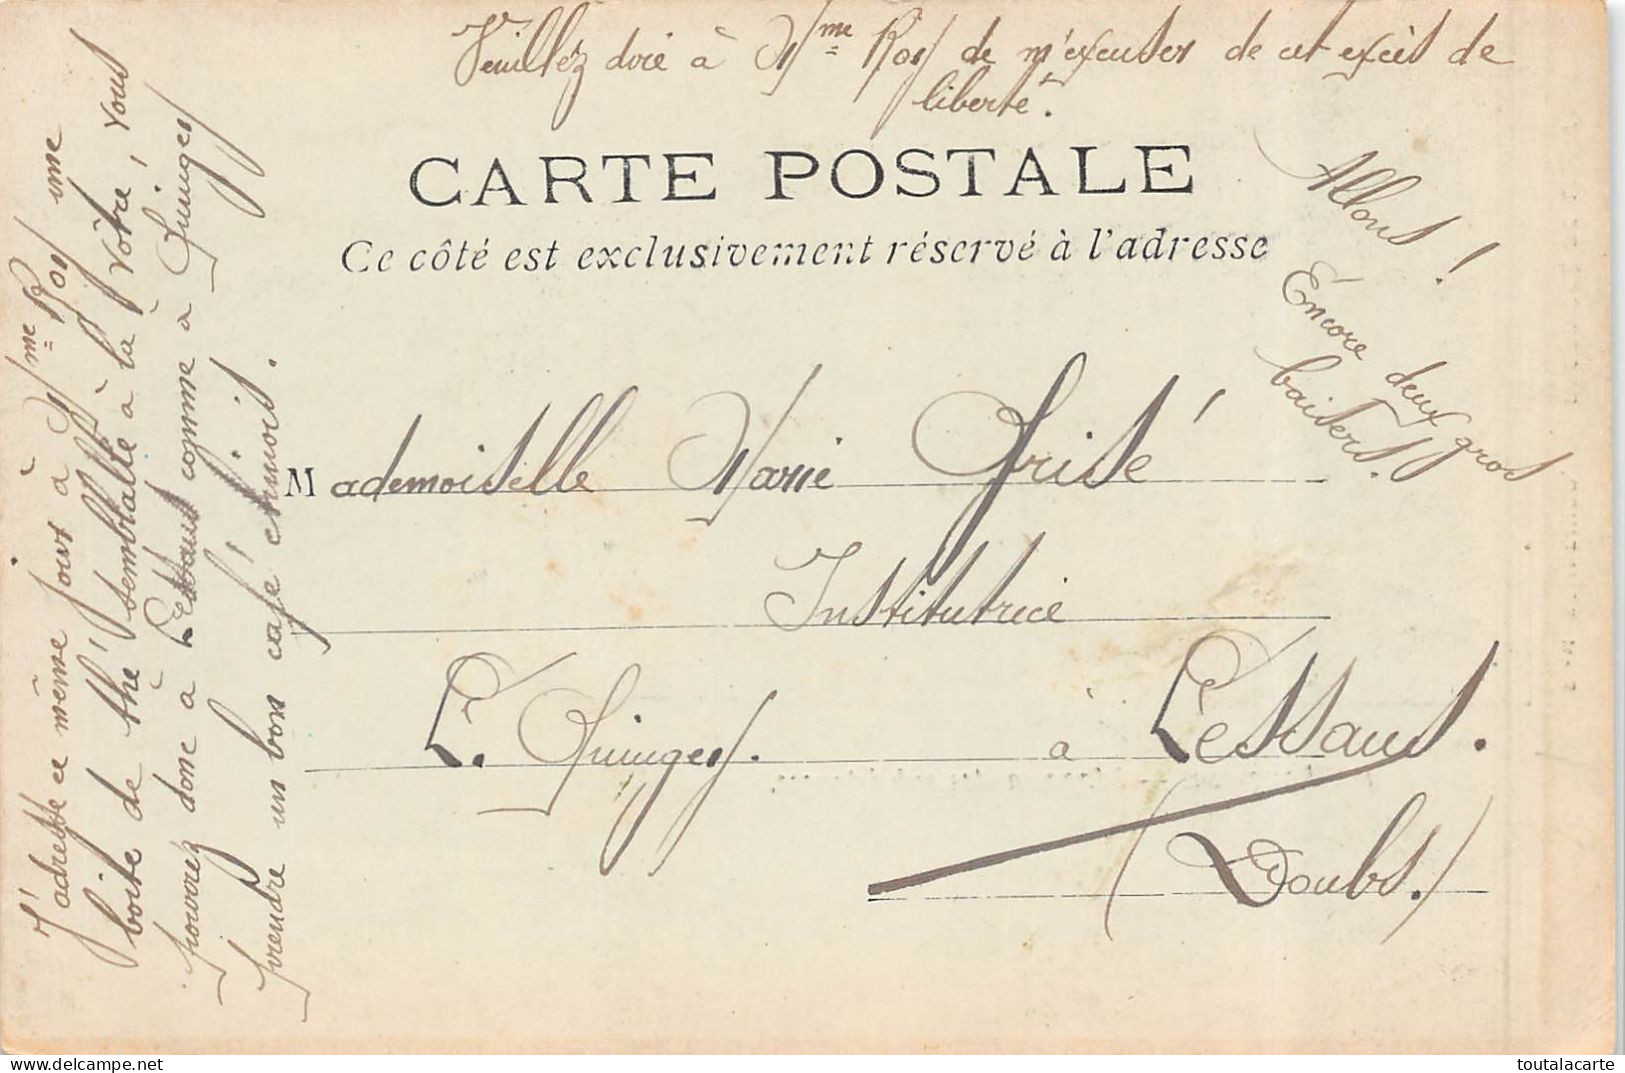 Veuillez dire à Mme Roy de m'excuser de cet excès de
liberté.
CARTE POSTALE
Ce côté est exclusivement réservé à l'adresse
Allons !
Encore deux gros
baisers.
Mademoiselle Marie Grisé
Institutrice
L. Quingey. à Lessaus.
(Doubs.)
J'adresse ce même jour à Mme Roy une
boite de thé semblable à la vôtre, vous
pouvrez donc à Lessaus comme à Quingey
prendre un bon café chinois.
toutalacarte